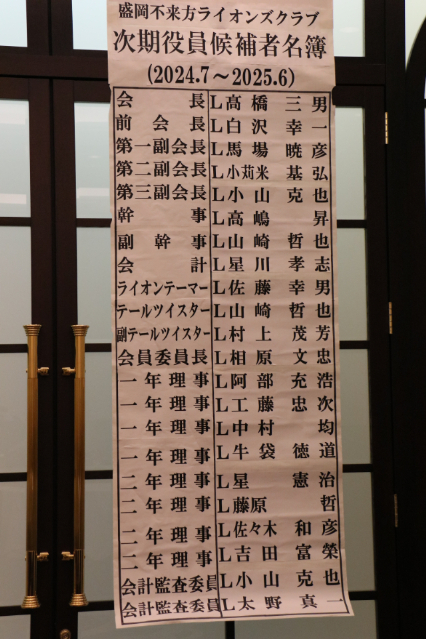 盛岡不来方ライオンズクラブ
次期役員候補者名簿
(2024.7～2025.6)
会長 L高橋三男
前会長 L白沢幸一
第一副会長 L馬場暁彦
第二副会長 L小苅米基弘
第三副会長 L小山克也
幹事 L高嶋昇
副幹事 L山崎哲也
会計 L星川孝志
ライオンテーマー L佐藤幸男
テールツイスター L山崎哲也
副テールツイスター L村上茂芳
会員委員長 L相原文忠
一年理事 L阿部充浩
一年理事 L工藤忠次
一年理事 L中村均
一年理事 L牛袋徳道
二年理事 L星憲治
二年理事 L藤原哲
二年理事 L佐々木和彦
二年理事 L吉田富榮
会計監査委員 L小山克也
会計監査委員 L太野真一